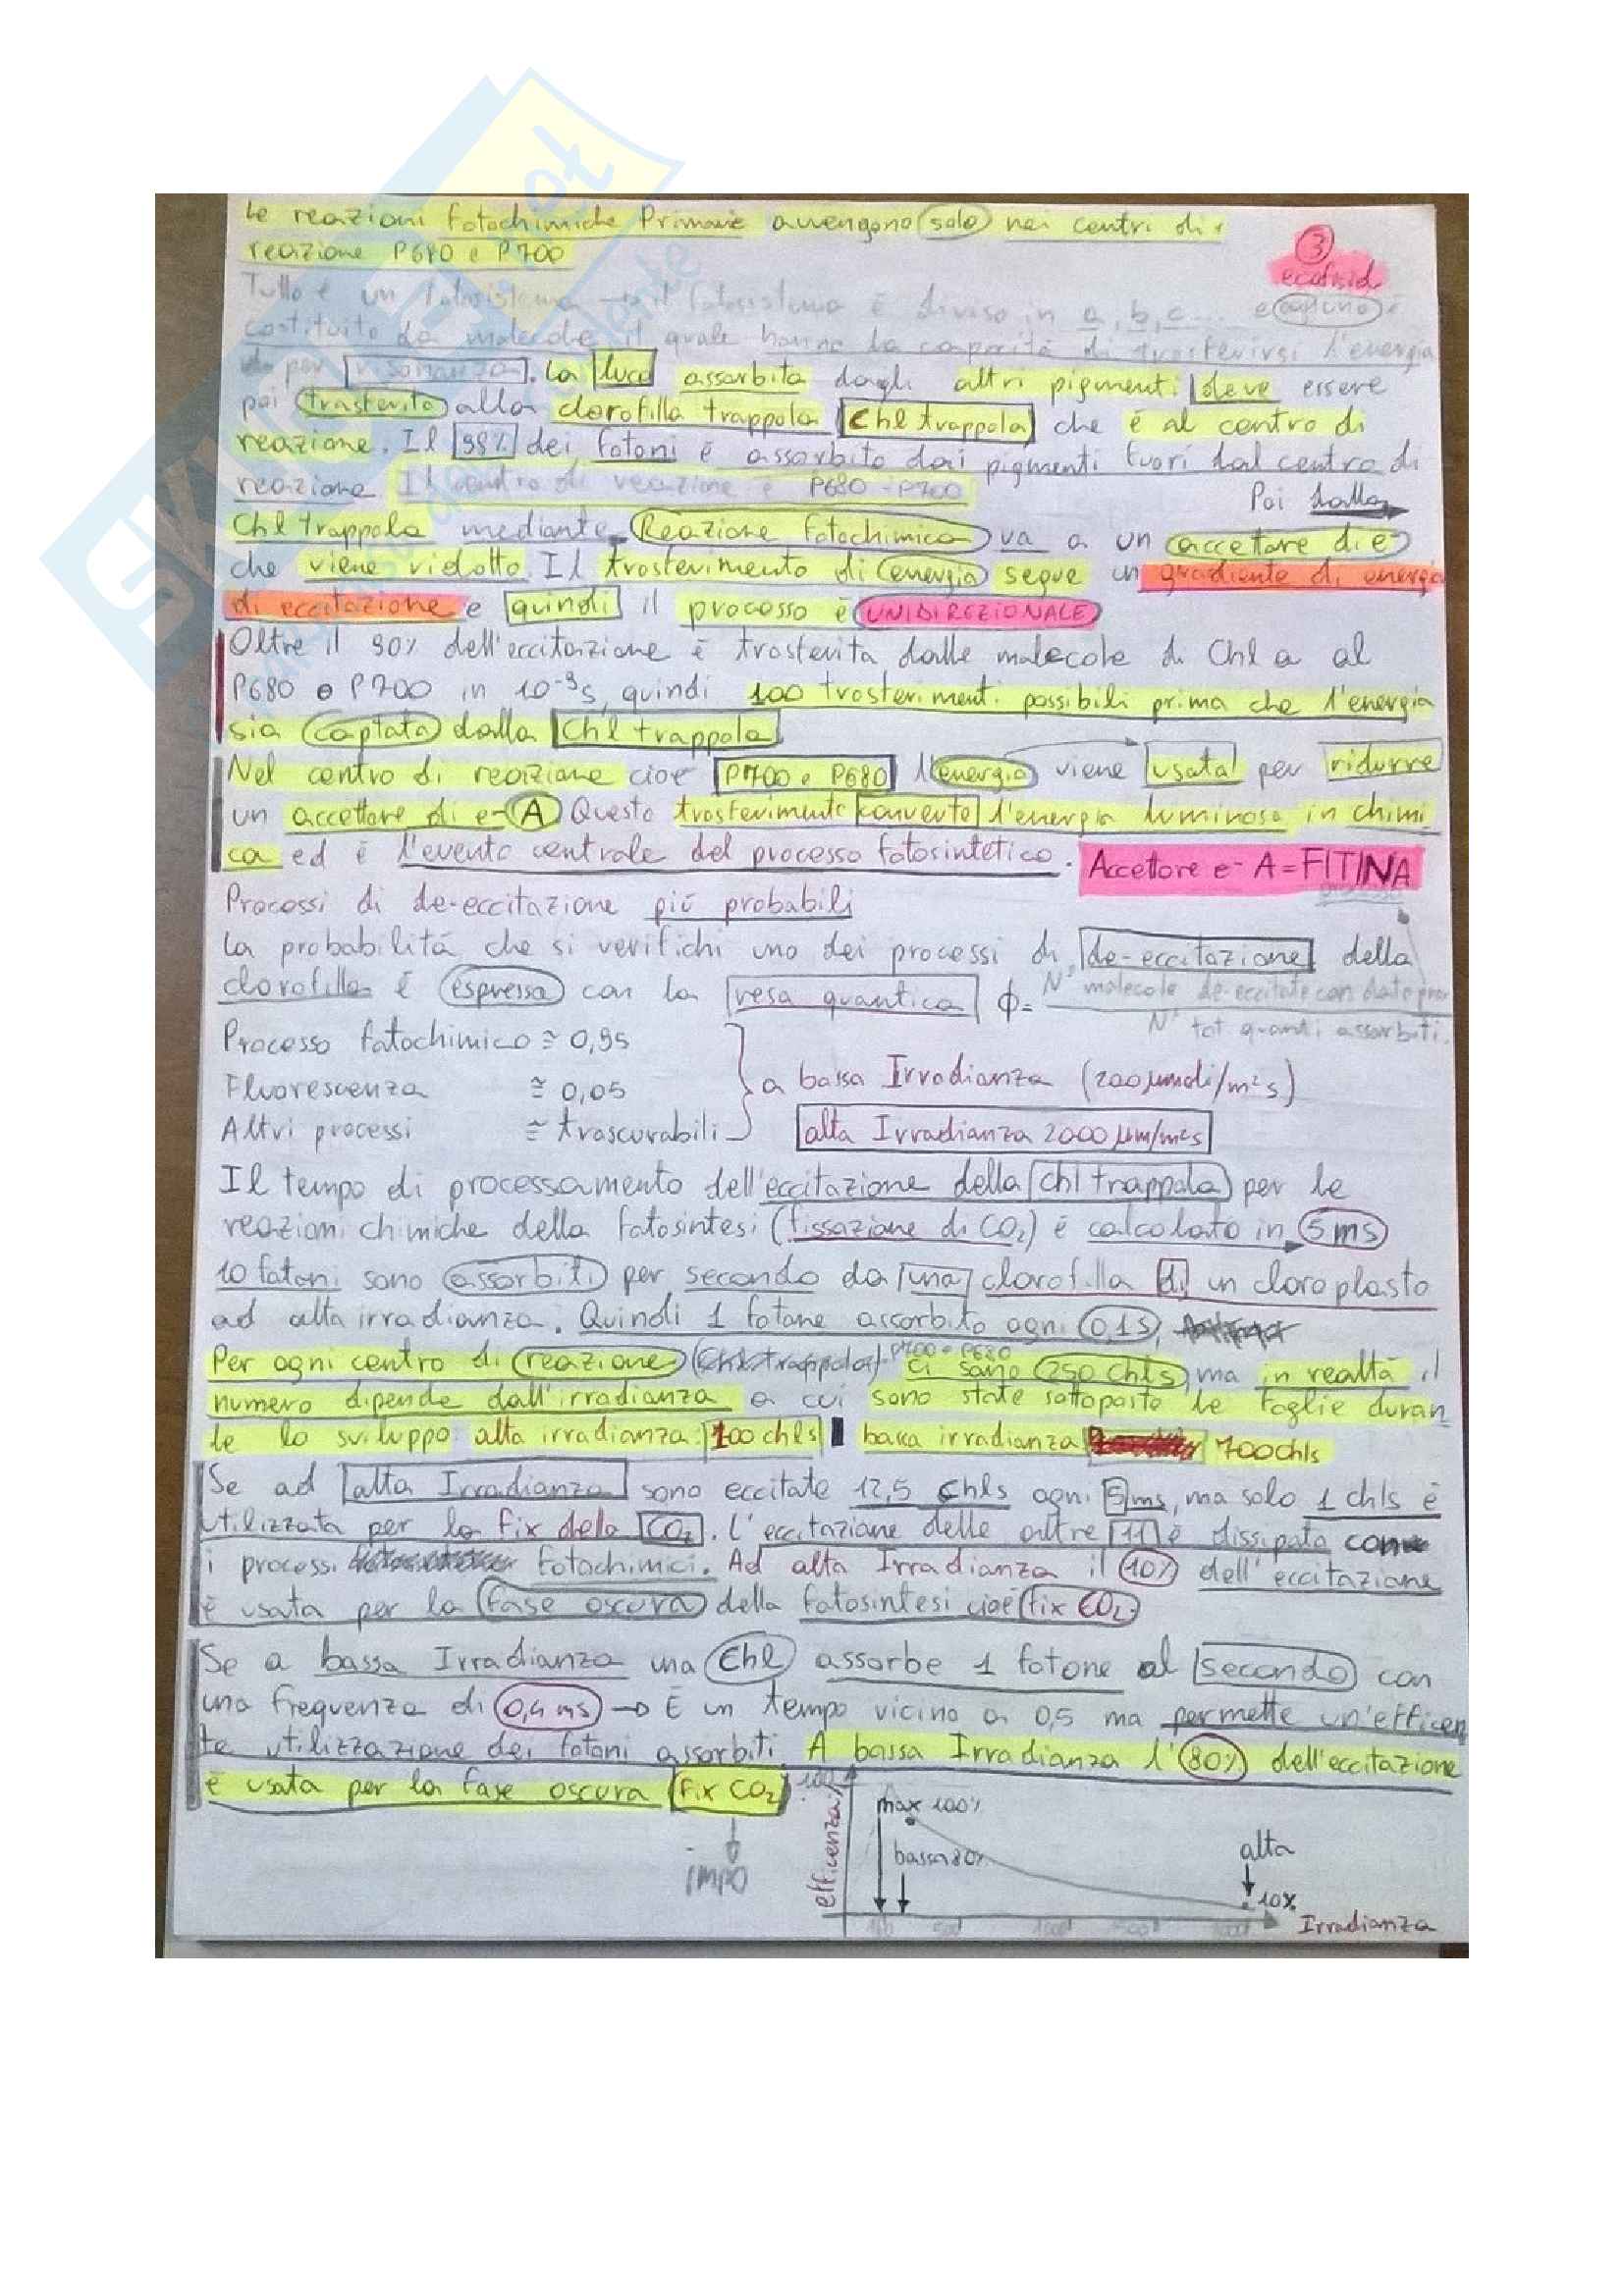 Le reazioni fotochimiche Primarie avvengono solo nei centri di
reazione P680 e P700
3
ecofisio
Tutto è un fotosistema → il fotosistema è diviso in a, b, c... e ognuno è
costituito da molecole il quale hanno la capacità di trasferirsi l'energia
per risonanza. La luce assorbita dagli altri pigmenti deve essere
poi trasferita alla clorofilla trappola Chl trappola che è al centro di
reazione. Il 98% dei fotoni è assorbito dai pigmenti fuori dal centro di
reazione. Il centro di reazione è P680 - P700
Poi dalla
Chl trappola mediante Reazione fotochimica va a un accettore di e-
che viene ridotto. Il trasferimento di energia segue un gradiente di energia
di eccitazione e quindi il processo è UNIDIREZIONALE
Oltre il 90% dell'eccitazione è trasferita dalle molecole di Chl a al
P680 o P700 in 10-9s, quindi 100 trasferimenti possibili prima che l'energia
sia captata dalla Chl trappola
Nel centro di reazione cioè P700 e P680 l'energia viene usata per ridurre
un accettore di e- A Questo trasferimento converte l'energia luminosa in chimi
ca ed è l'evento centrale del processo fotosintetico. Accettore e- A = FITINA
Processi di de-eccitazione più probabili
La probabilità che si verifichi uno dei processi di de-eccitazione della
clorofilla è espressa con la resa quantica ϕ= N° molecole de-eccitate con dato
N° tot quanti assorbiti.
Processo fotochimico ≅ 0,95
Fluorescenza ≅ 0,05
Altri processi ≅ trascurabili
a bassa Irradianza (200 μmoli/m²s)
alta Irradianza 2000 μm/m²s
Il tempo di processamento dell'eccitazione della chl trappola per le
reazioni chimiche della fotosintesi (fissazione di CO₂) è calcolato in 5 ms
10 fotoni sono assorbiti per secondo da una clorofilla di un cloroplasto
ad alta irradianza. Quindi 1 fotone assorbito ogni 0,1 s,
Per ogni centro di reazione (Chl trappola) P700 o P680 ci sono 250 chls, ma in realtà il
numero dipende dall'irradianza a cui sono state sottoposte le foglie duran
te lo sviluppo. alta irradianza: 100 chls bassa irradianza 700chls
Se ad alta Irradianza sono eccitate 12,5 Chls ogni 5 ms, ma solo 1 chls è
utilizzata per la fix della CO₂. L'eccitazione delle altre 11 è dissipata con
i processi fotochimici. Ad alta Irradianza il 10% dell'eccitazione
è usata per la fase oscura della fotosintesi cioè fix CO₂.
Se a bassa Irradianza una Chl assorbe 1 fotone al secondo con
una frequenza di 0,4 ms → È un tempo vicino a 0,5 ma permette un'efficen
te utilizzazione dei fotoni assorbiti. A bassa Irradianza l'80% dell'eccitazione
è usata per la fase oscura fix CO₂
efficenza
100
max 100%
bassa 80%
alta
10%
Irradianza